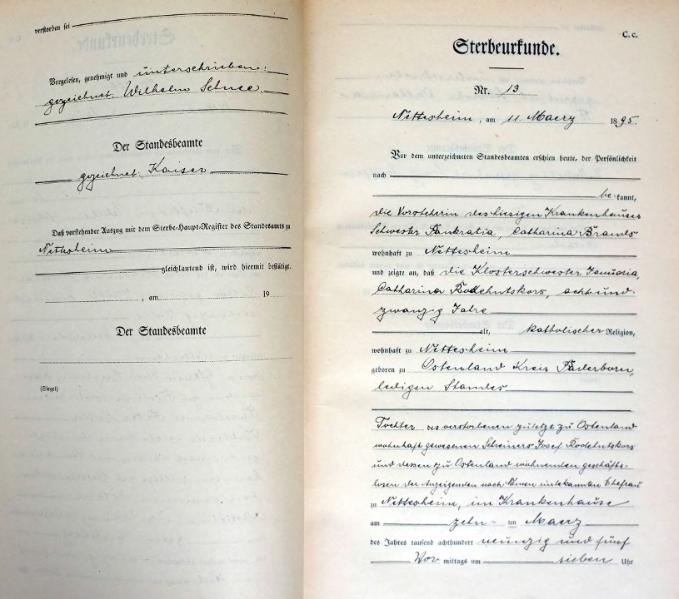 verstorben sei
Vorgelesen, genehmigt und unterschrieben:
gezeichnet Wilhelm Schnee
Der Standesbeamte
gezeichnet Kaiser
Daß vorstehender Auszug mit dem Sterbe-Haupt-Register des Standesamts zu
Nettesheim
gleichlautend ist, wird hiermit bestätigt.
, am 19
Der Standesbeamte
(Siegel)
C. c.
Sterbeurkunde.
Nr. 13
Nettesheim, am 11 Maerz 1895
Vor dem unterzeichneten Standesbeamten erschien heute, der Persönlichkeit
nach
bekannt,
die Vorsteherin des hiesigen Krankenhauses
Schwester Pankratia, Catharina Brands
wohnhaft zu Nettesheim
und zeigte an, daß die Klosterschwester Januaria,
Catharina Rodehutskors, acht und
zwanzig Jahre
alt, katholischer Religion,
wohnhaft zu Nettesheim
geboren zu Ostenland Kreis Paderborn,
ledigen Standes
Tochter des verstorbenen zuletzt zu Ostenland
wohnhaft gewesenen Schreiners Josef Rodehutskors
und dessen zu Ostenland wohnenden geschäfts-
losen der Anzeigenden nach Namen unbekannten Ehefrau
zu Nettesheim, im Krankenhause
am zehn ten Maerz
des Jahres tausend achthundert neunzig und fünf
Vor mittags um sieben Uhr